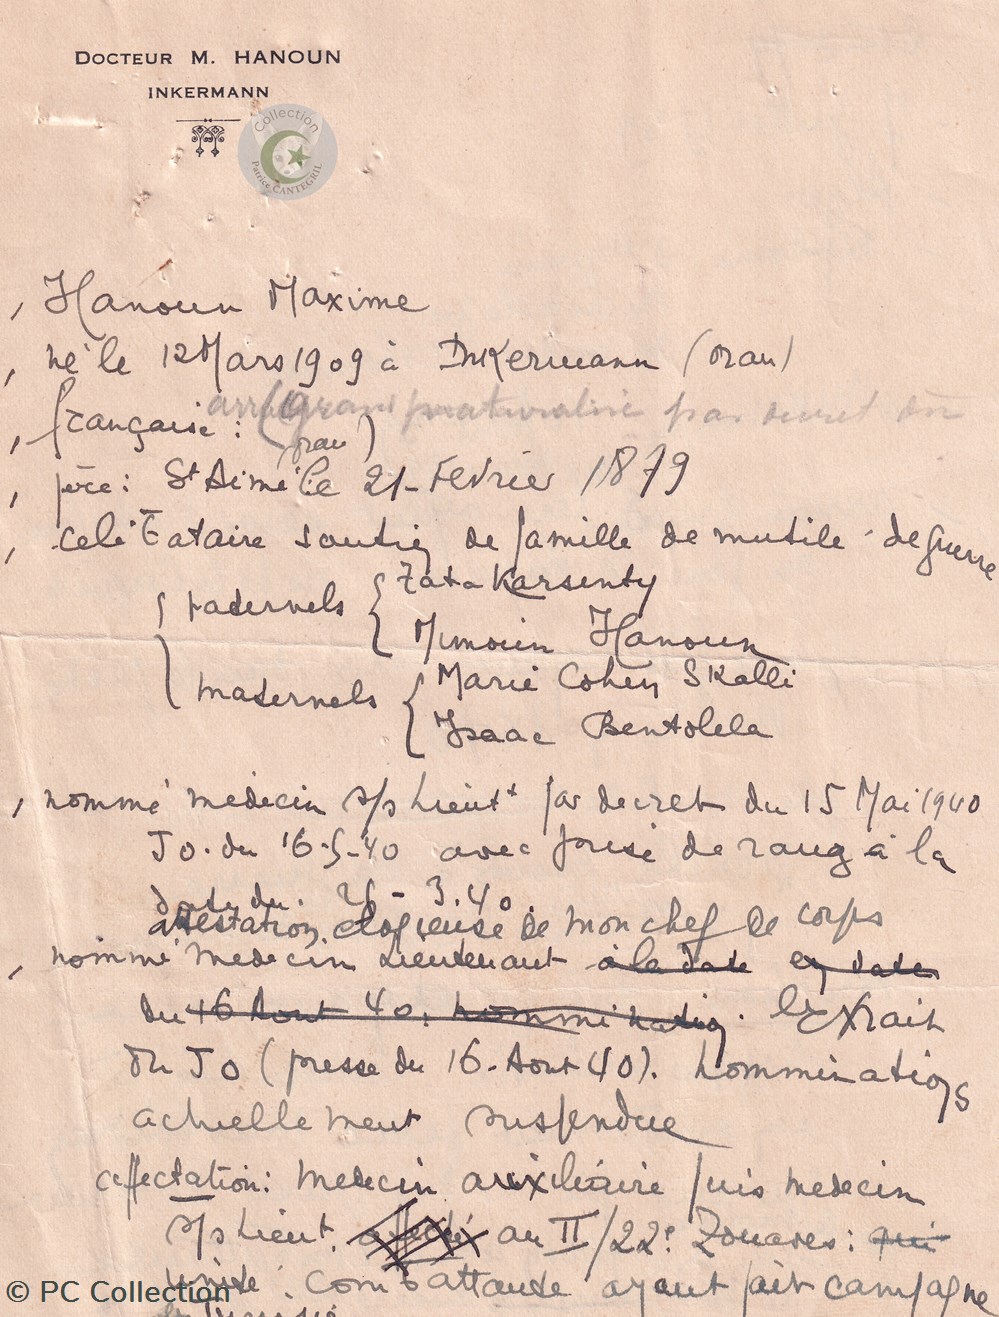 DOCTEUR M. HANOUN
INKERMANN
Collection
Patrice CANTEGRIL
, Hanoun Maxime
, né le 12 Mars 1909 à Inkermann (oran)
arr grand naturalisé par decret du
, française : (oran)
, père : St Aimé le 21-Fevrier 1879
, celibataire soutien de famille de mutilé de guerre
padernels { Zata Karsenty
Mimoun Hanoun
madernels { Marie Cohen Skalli
Isaac Bentolela
, nommé médecin s/s Lieutt par decret du 15 Mai 1940
JO. du 16-5-40 avec prise de rang à la
date du 3.40.
attestation elogieuse de mon chef de corps
, nommé medecin Lieutenant à la date en date
du 16 Aout 40. nommination. l'extrait
du JO (presse du 16-Aout 40). nomminations
actuellement suspendue
affectation: medecin auxiliaire puis medecin
s/s Lieut. affecté au II/22e Zouaves: qui
unité combattante ayant fait campagne
© PC Collection